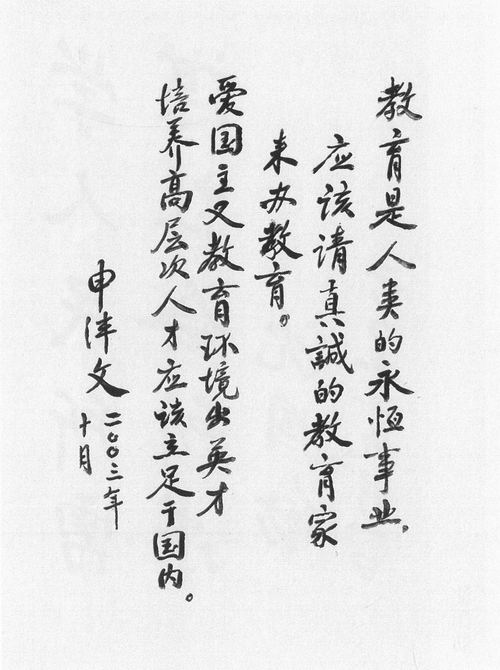 教育是人类的永恒事业，
应该请真誠的教育家
来办教育。
爱国主义教育环境出英才
培养高层次人才应该立足于国内。
申泮文
二〇〇三年
十月